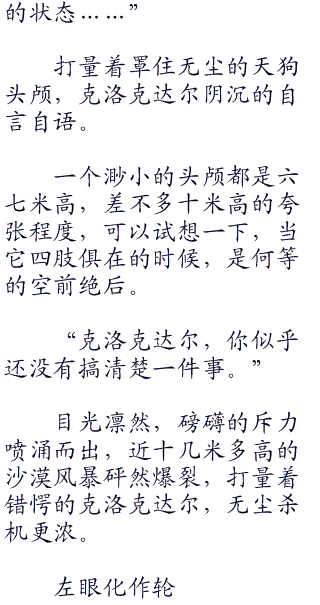 的状态……”
打量着罩住无尘的天狗
头颅，克洛克达尔阴沉的自
言自语。
一个渺小的头颅都是六
七米高，差不多十米高的夸
张程度，可以试想一下，当
它四肢俱在的时候，是何等
的空前绝后。
“克洛克达尔，你似乎
还没有搞清楚一件事。”
目光凛然，磅礴的斥力
喷涌而出，近十几米多高的
沙漠风暴砰然爆裂，打量着
错愕的克洛克达尔，无尘杀
机更浓。
左眼化作轮